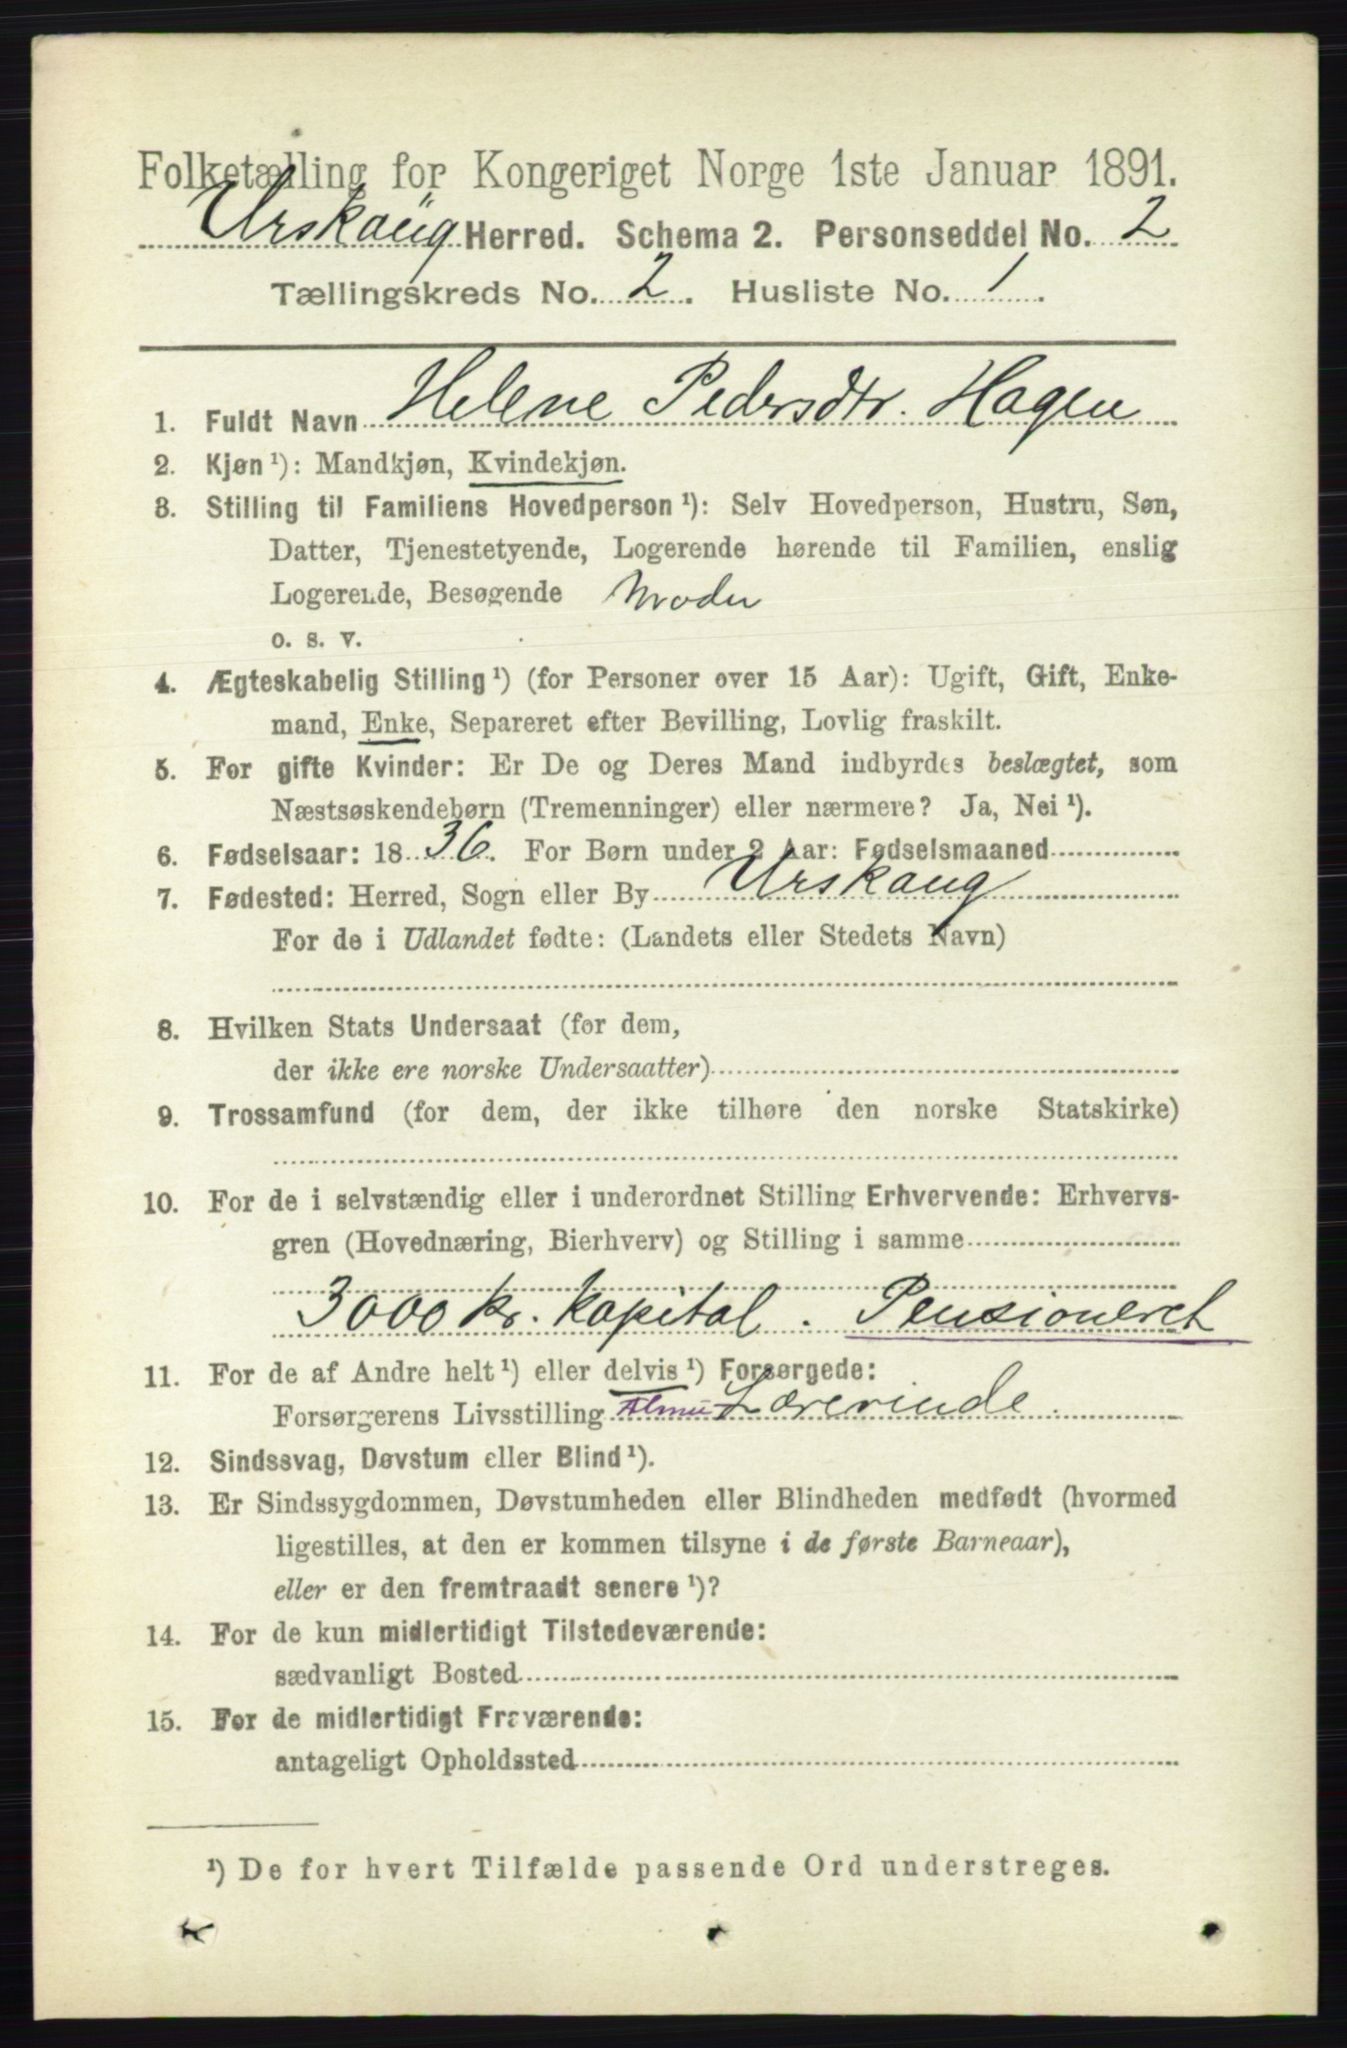 Folketælling for Kongeriget Norge 1ste Januar 1891.
Urskoug Herred. Schema 2. Personseddel No. 2
Tællingskreds No. 2. Husliste No. 1.
1. Fuldt Navn Helene Pedersdtr. Hagen
2. Kjøn ¹): Mandkjøn, Kvindekjøn.
3. Stilling til Familiens Hovedperson ¹): Selv Hovedperson, Hustru, Søn,
Datter, Tjenestetyende, Logerende hørende til Familien, enslig
Logerende, Besøgende Moder
o. s. v.
4. Ægteskabelig Stilling ¹) (for Personer over 15 Aar): Ugift, Gift, Enke-
mand, Enke, Separeret efter Bevilling, Lovlig fraskilt.
5. For gifte Kvinder: Er De og Deres Mand indbyrdes beslægtet, som
Næstsøskendebørn (Tremenninger) eller nærmere? Ja, Nei ¹).
6. Fødselsaar: 1836. For Børn under 2 Aar: Fødselsmaaned
7. Fødested: Herred, Sogn eller By Urskoug
For de i Udlandet fødte: (Landets eller Stedets Navn)
8. Hvilken Stats Undersaat (for dem,
der ikke ere norske Undersaatter)
9. Trossamfund (for dem, der ikke tilhøre den norske Statskirke)
10. For de i selvstændig eller i underordnet Stilling Erhvervende: Erhvervs-
gren (Hovednæring, Bierhverv) og Stilling i samme
3000 kr. Kapital. Pensioneret
11. For de af Andre helt ¹) eller delvis ¹) Forsørgede:
Forsørgerens Livsstilling Almu Lærerinde.
12. Sindssvag, Døvstum eller Blind ¹).
13. Er Sindssygdommen, Døvstumheden eller Blindheden medfødt (hvormed
ligestilles, at den er kommen tilsyne i de første Barneaar),
eller er den fremtraadt senere ¹)?
14. For de kun midlertidigt Tilstedeværende:
sædvanligt Bosted
15. For de midlertidigt Fraværende:
antageligt Opholdssted
¹) De for hvert Tilfælde passende Ord understreges.